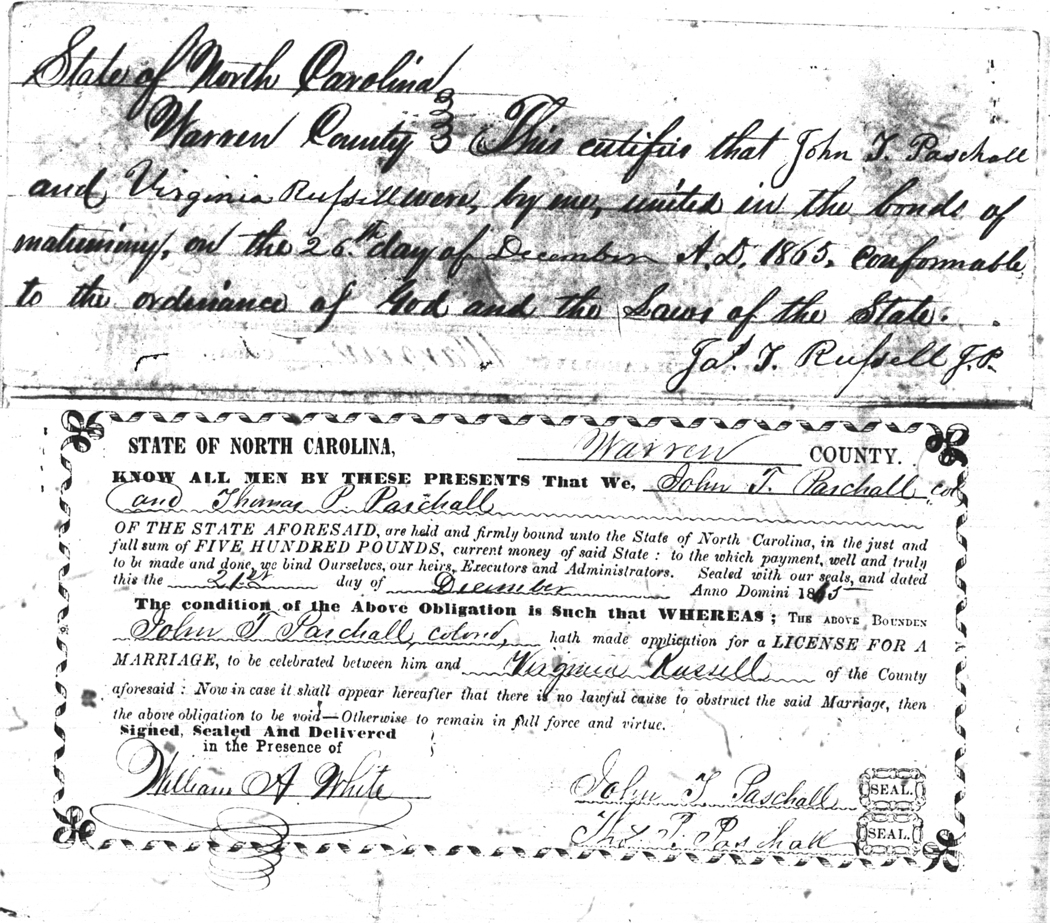 State of North Carolina
Warren County } This certifies that John T. Paschall
and Virginia Russell were, by me, united in the bonds of
matrimony, on the 26th day of December A.D. 1865. conformable
to the ordinance of God and the Laws of the State.
Jas. T. Russell J.P.
STATE OF NORTH CAROLINA, Warren COUNTY.
KNOW ALL MEN BY THESE PRESENTS That We, John T. Paschall, col
and Thomas P. Paschall
OF THE STATE AFORESAID, are held and firmly bound unto the State of North Carolina, in the just and
full sum of FIVE HUNDRED POUNDS, current money of said State: to the which payment, well and truly
to be made and done, we bind Ourselves, our heirs, Executors and Administrators. Sealed with our seals, and dated
this the 21st day of December Anno Domini 1865
The condition of the Above Obligation is Such that WHEREAS; THE ABOVE BOUNDEN
John T Paschall, colored, hath made application for a LICENSE FOR A
MARRIAGE, to be celebrated between him and Virginia Russell of the County
aforesaid: Now in case it shall appear hereafter that there is no lawful cause to obstruct the said Marriage, then
the above obligation to be void—Otherwise to remain in full force and virtue.
Signed, Sealed And Delivered
in the Presence of
William A White
John T Paschall SEAL.
Tho P. Paschall SEAL.